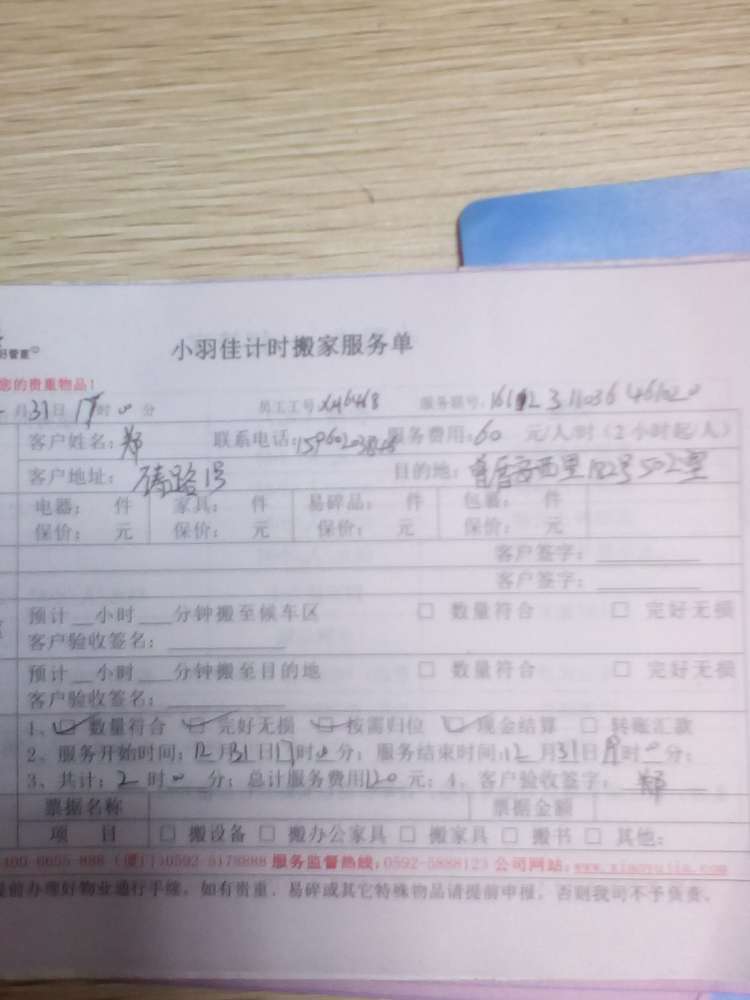 好管家
小羽佳计时搬家服务单
您的贵重物品！
月31日17时0分 员工工号 服务联号:
客户姓名:郑 联系电话: 服务费用:60 元/人/时（2小时起/人）
客户地址: 路1号 目的地: 西里182号502室
电器: 件 家具: 件 易碎品: 件 包裹: 件
保价: 元 保价: 元 保价: 元 保价: 元
客户签字:
客户签字:
预计__小时___分钟搬至候车区 □ 数量符合 □ 完好无损
客户验收签名:
预计__小时___分钟搬至目的地 □ 数量符合 □ 完好无损
客户验收签名:
1、☑ 数量符合 ☑ 完好无损 ☑ 按需归位 ☑ 现金结算 □ 转账汇款
2、服务开始时间:12月31日17时0分; 服务结束时间:12月31日19时0分;
3、共计:2时0分; 总计服务费用120元; 4、客户验收签字: 郑
票据名称 票据金额
项 目 □ 搬设备 □ 搬办公家具 □ 搬家具 □ 搬书 □ 其他:
400-6655-888 (厦门)0592-5178888 服务监督热线:0592-5888123 公司网站:www.xiaoyujia.com
提前办理好物业通行手续，如有贵重、易碎或其它特殊物品请提前申报，否则我司不予负责。